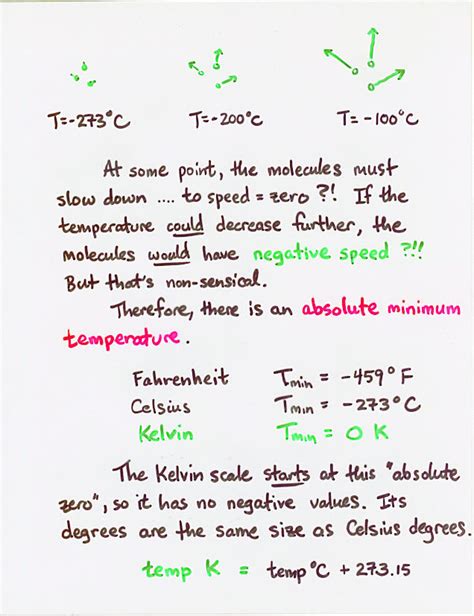 T=-273°C T=-200°C T= -100°C
At some point, the molecules must
slow down .... to speed = zero ?! If the
temperature could decrease further, the
molecules would have negative speed ?!!
But that's non-sensical.
Therefore, there is an absolute minimum
temperature.
Fahrenheit Tmin = -459°F
Celsius Tmin = -273°C
Kelvin Tmin = 0 K
The Kelvin scale starts at this "absolute
zero", so it has no negative values. Its
degrees are the same size as Celsius degrees.
temp K = temp°C + 273.15